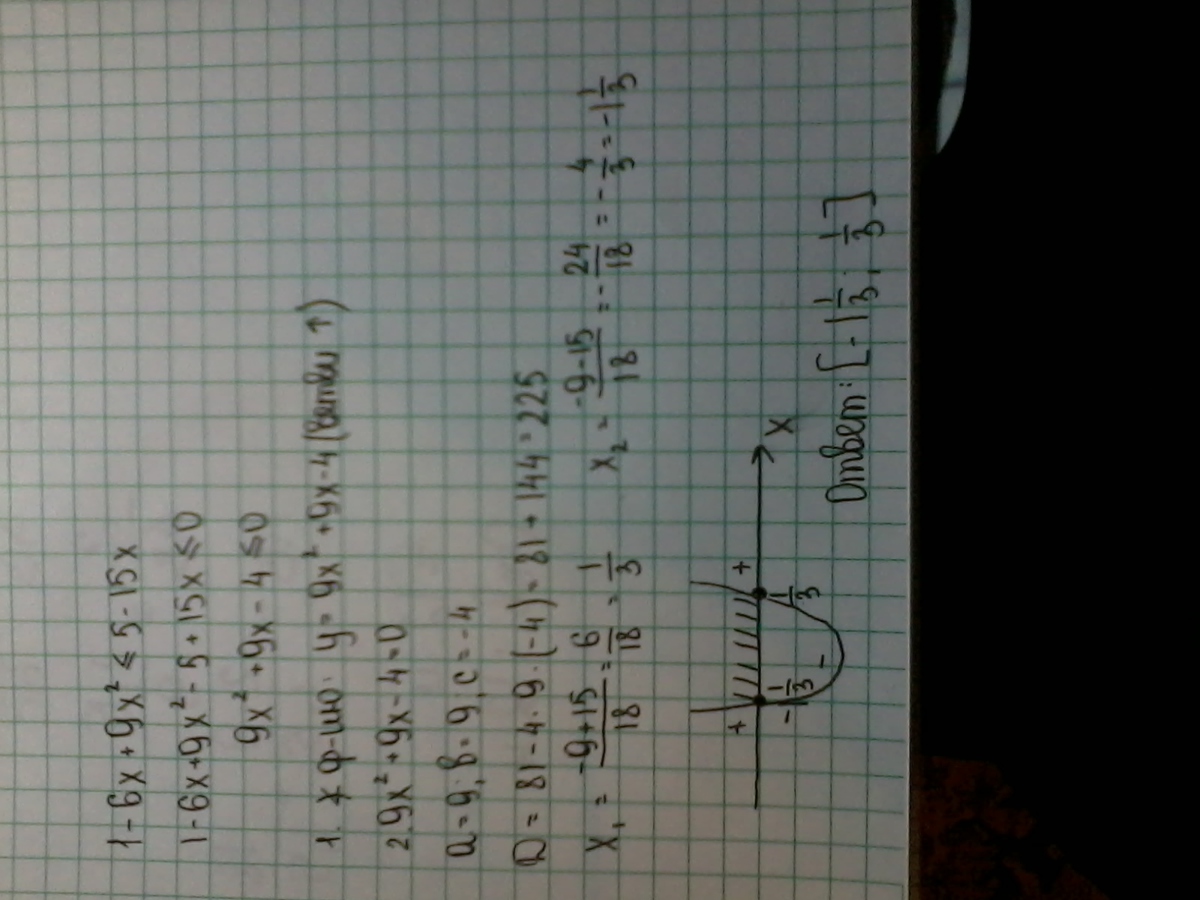 1 - 6x + 9x² ≤ 5 - 15x
1 - 6x + 9x² - 5 + 15x ≤ 0
9x² + 9x - 4 ≤ 0
1. ф-цию: y = 9x² + 9x - 4 (ветви ↑)
2. 9x² + 9x - 4 = 0
a = 9; b = 9, c = -4
D = 81 - 4 · 9 · (-4) = 81 + 144 = 225
x₁ = (-9+15)/18 = 6/18 = 1/3 x₂ = (-9-15)/18 = -24/18 = -4/3 = -1 1/3
+ +
-
-1 1/3 1/3 X
Ответ: [-1 1/3; 1/3]